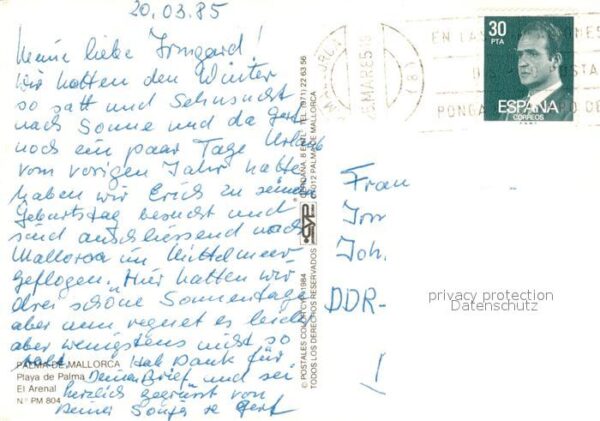 20.03.85
Meine liebe Irmgard!
Wir hatten den Winter
so satt und Sehnsucht
nach Sonne und da Gert
noch ein paar Tage Urlaub
vom vorigen Jahr hatte
haben wir Erich zu seinem
Geburtstag besucht und
sind anschliessend nach
Mallorca im Mittelmeer
geflogen. Hier hatten wir
drei schöne Sonnentage
aber nun regnet es leider
aber wenigstens nicht so
kalt. Hab Dank für
Deinen Brief und sei
herzlich gegrüsst von
Deiner Sonja u Gert
PALMA DE MALLORCA
Playa de Palma
El Arenal
N.º PM 804
© POSTALES COLOR CYP 1984
TODOS LOS DERECHOS RESERVADOS
CYP
TEL. (971) 22 63 56
07012 PALMA DE MALLORCA
MAR 85
EN LAS
PONGA
30
PTA
ESPAÑA
CORREOS
Frau
Irm
Joh.
DDR-
!
privacy protection
Datenschutz